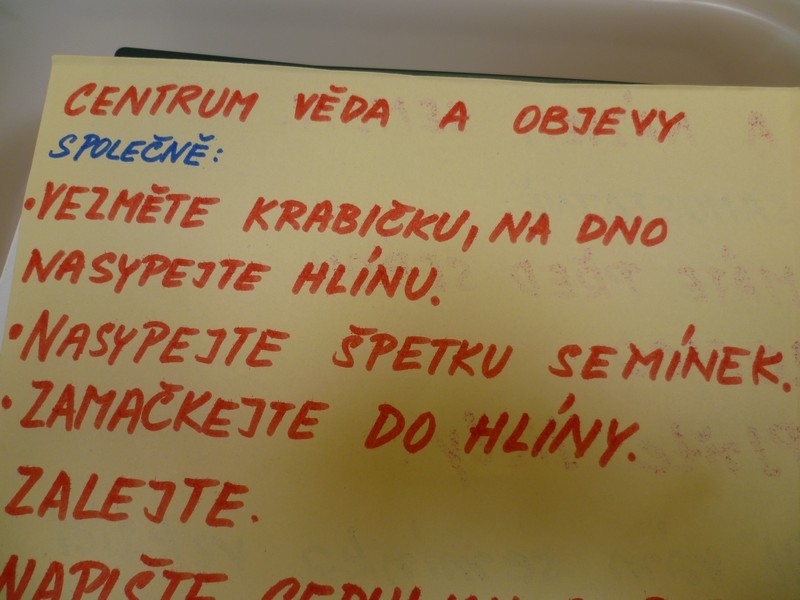 CENTRUM VĚDA A OBJEVY
SPOLEČNĚ:
• VEZMĚTE KRABIČKU, NA DNO
NASYPEJTE HLÍNU.
• NASYPEJTE ŠPETKU SEMÍNEK.
• ZAMAČKEJTE DO HLÍNY.
ZALEJTE.
NAPIŠTE